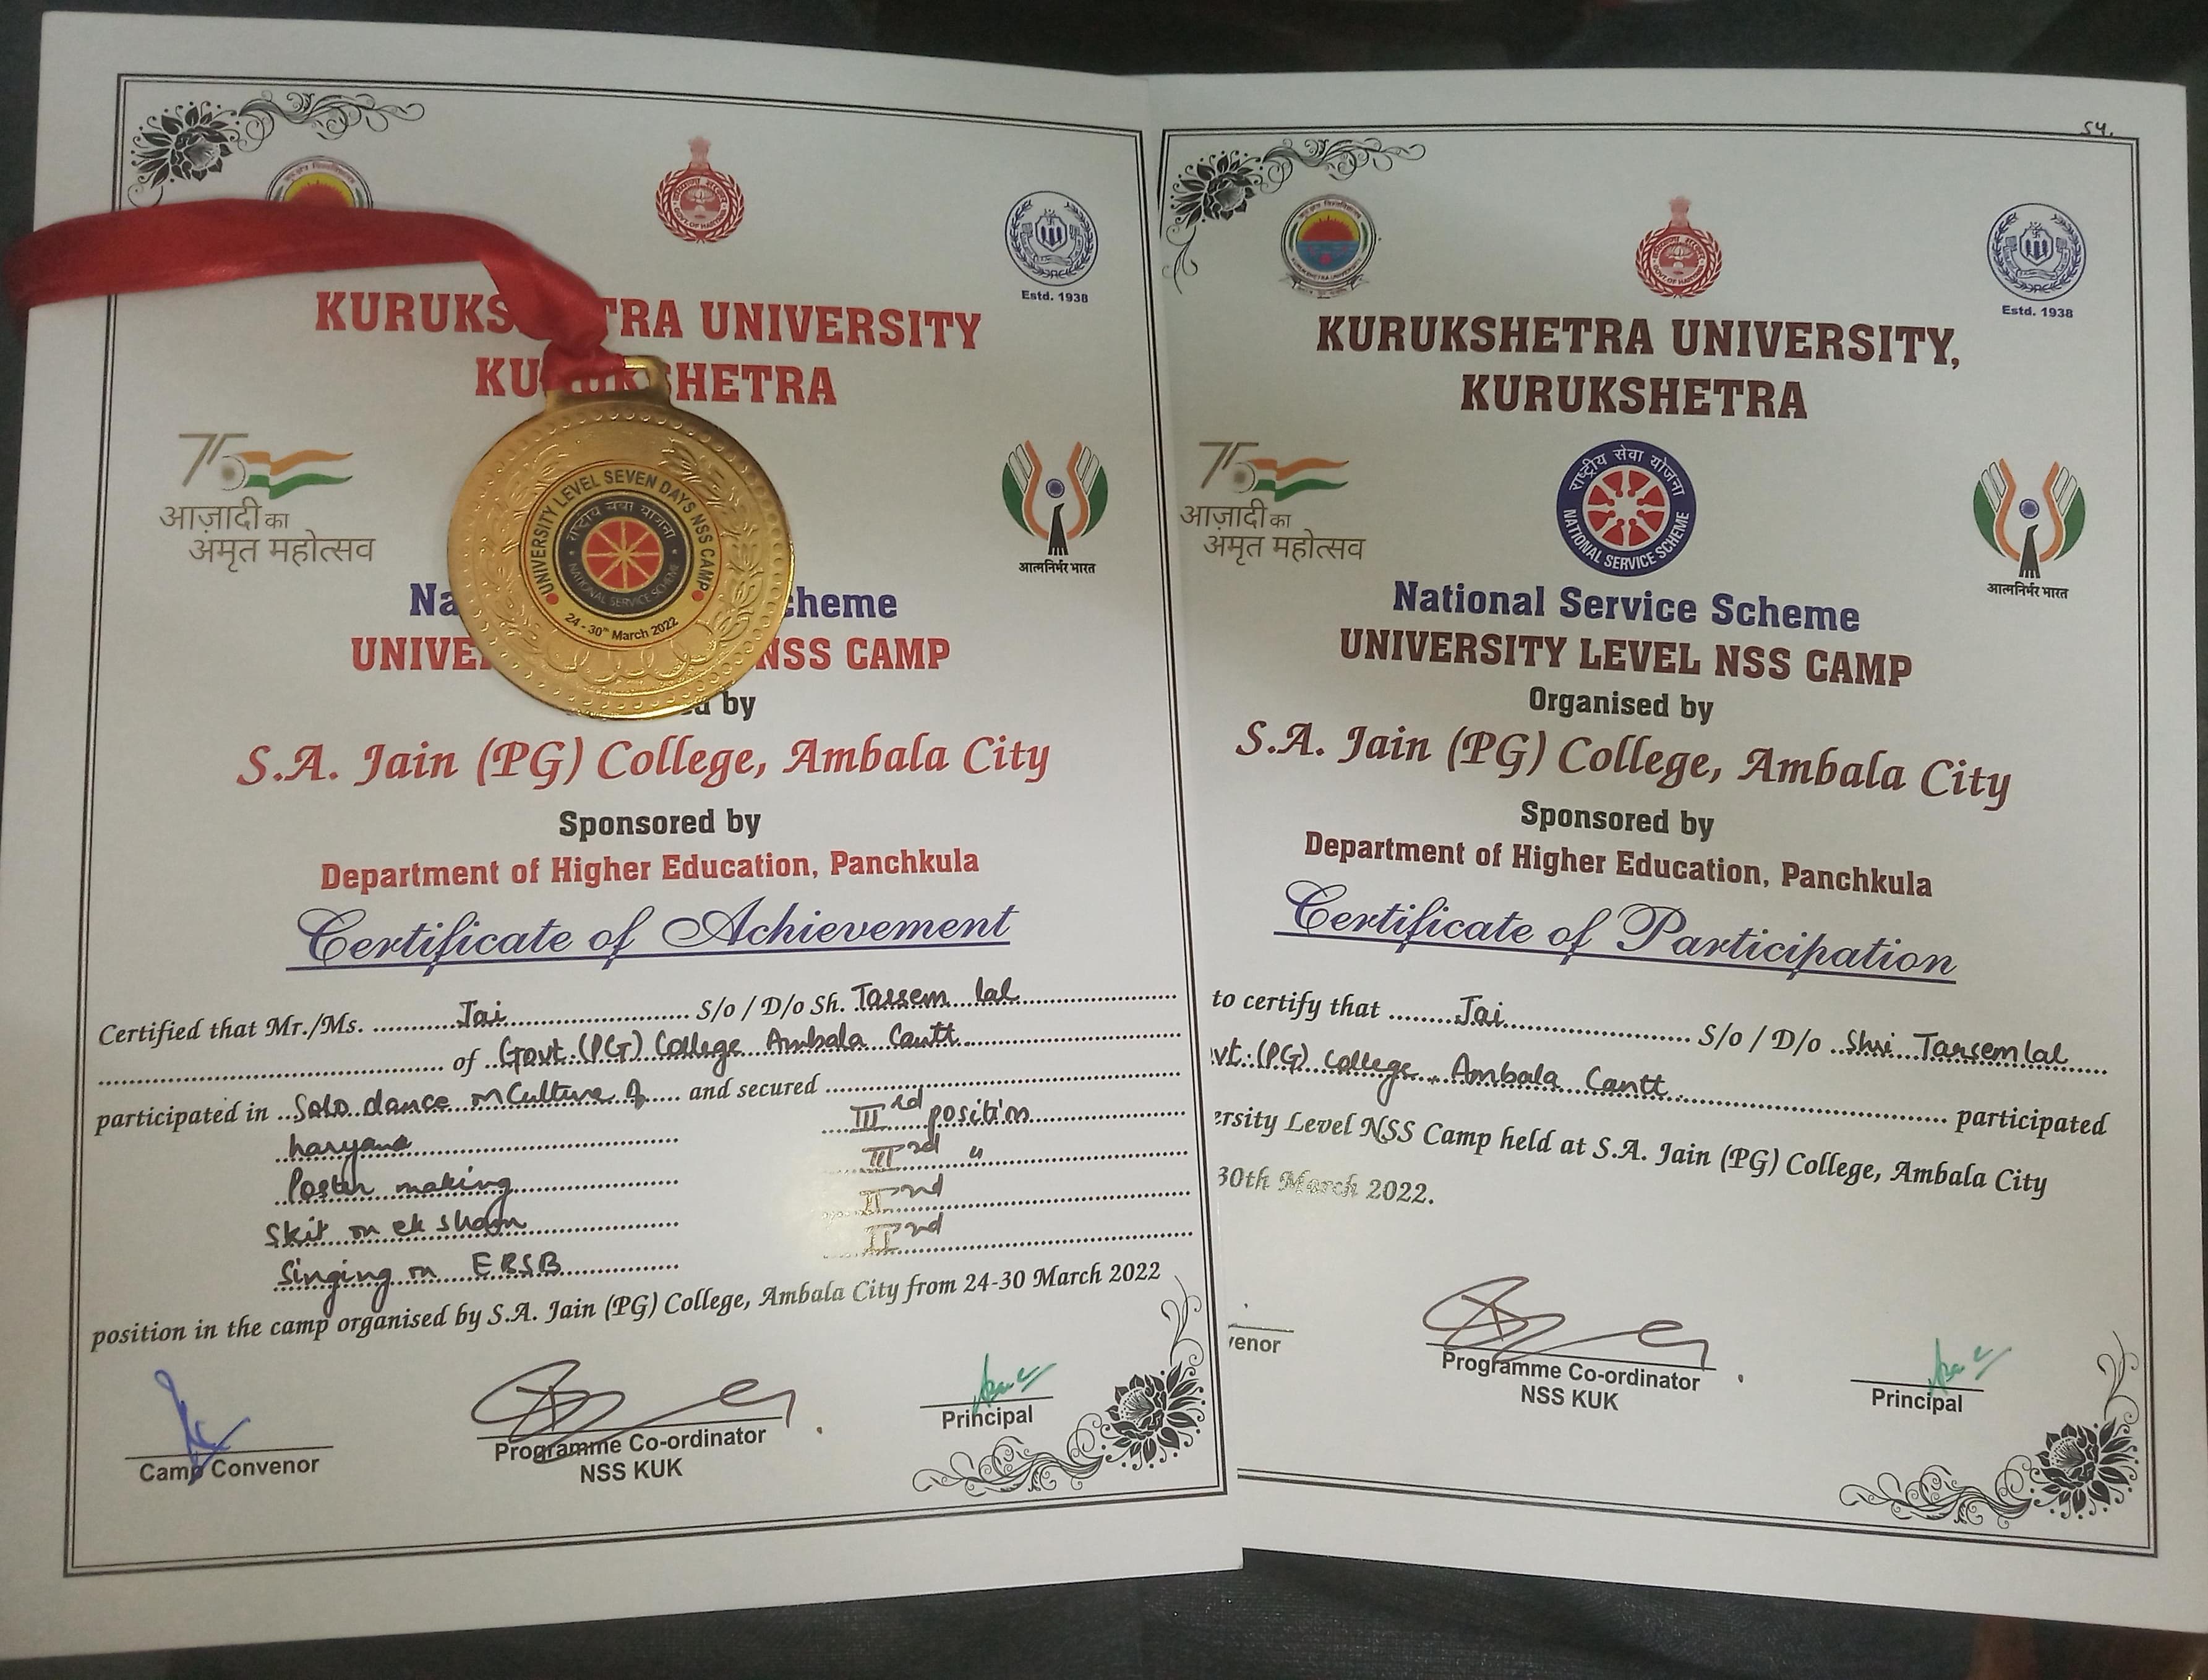 Estd. 1938
KURUKS TRA UNIVERSITY
KURUKSHETRA
75
आज़ादी का
अमृत महोत्सव
आत्मनिर्भर भारत
UNIVERSITY LEVEL SEVEN DAYS NSS CAMP
NATIONAL SERVICE SCHEME
24 - 30th March 2022
Na cheme
UNIVE NSS CAMP
by
S.A. Jain (PG) College, Ambala City
Sponsored by
Department of Higher Education, Panchkula
Certificate of Achievement
Certified that Mr./Ms. Jai S/o / D/o Sh. Tarsem lal
of Govt. (PG) College Ambala Cantt
participated in Solo dance on Culture of and secured
haryana IIIrd position
Poster making IIIrd "
Skit on ek sham IInd
Singing on EBSB IInd
position in the camp organised by S.A. Jain (PG) College, Ambala City from 24-30 March 2022
Camp Convenor
Programme Co-ordinator
NSS KUK
Principal
54.
KURUKSHETRA UNIVERSITY
GOVT. OF HARYANA
Estd. 1938
KURUKSHETRA UNIVERSITY,
KURUKSHETRA
75
आज़ादी का
अमृत महोत्सव
राष्ट्रीय सेवा योजना
NATIONAL SERVICE SCHEME
आत्मनिर्भर भारत
National Service Scheme
UNIVERSITY LEVEL NSS CAMP
Organised by
S.A. Jain (PG) College, Ambala City
Sponsored by
Department of Higher Education, Panchkula
Certificate of Participation
to certify that Jai S/o / D/o Shri Tarsem lal
vt. (PG) College, Ambala Cantt participated
ersity Level NSS Camp held at S.A. Jain (PG) College, Ambala City
30th March 2022.
venor
Programme Co-ordinator
NSS KUK
Principal